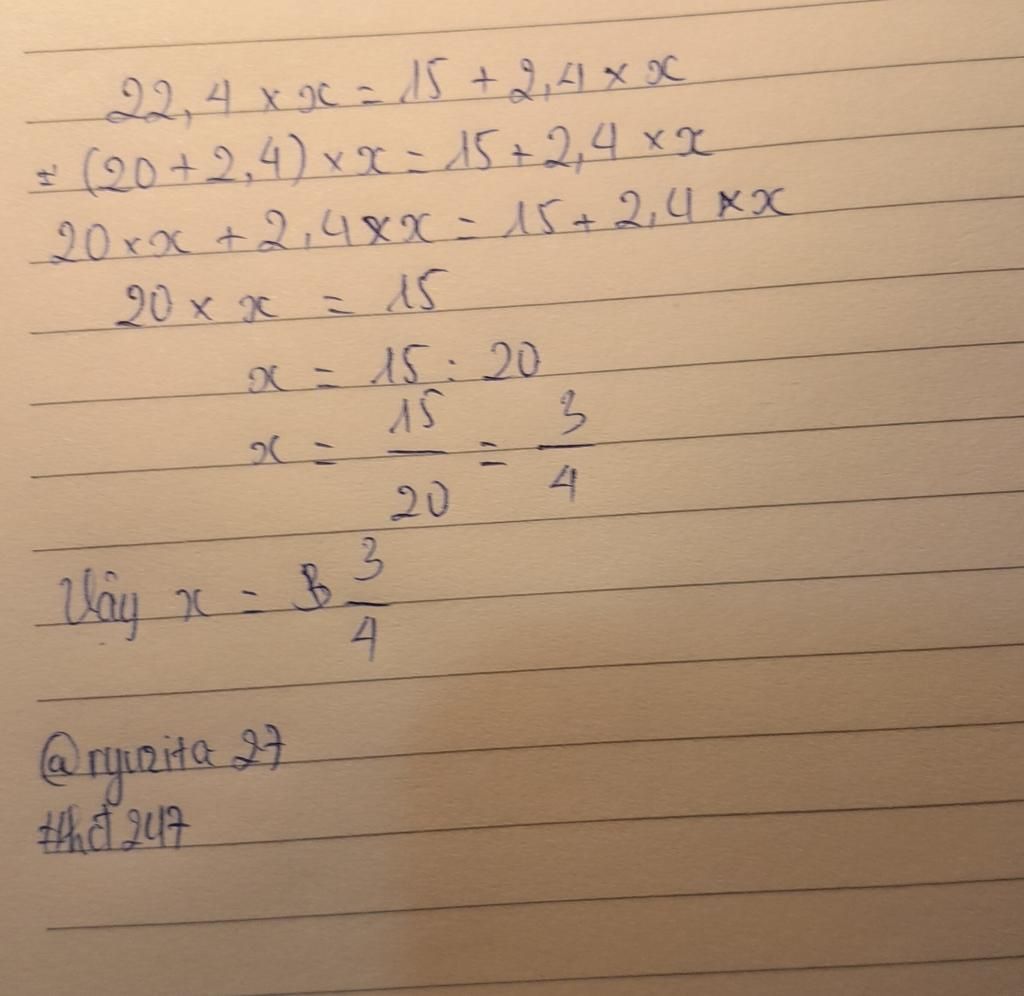 22,4 × x = 15 + 2,4 × x
= (20 + 2,4) × x = 15 + 2,4 × x
20 × x + 2,4 × x = 15 + 2,4 × x
20 × x = 15
x = 15 : 20
x = 15/20 = 3/4
Vây x = 3/4
@ryuzita 27
#hđ247